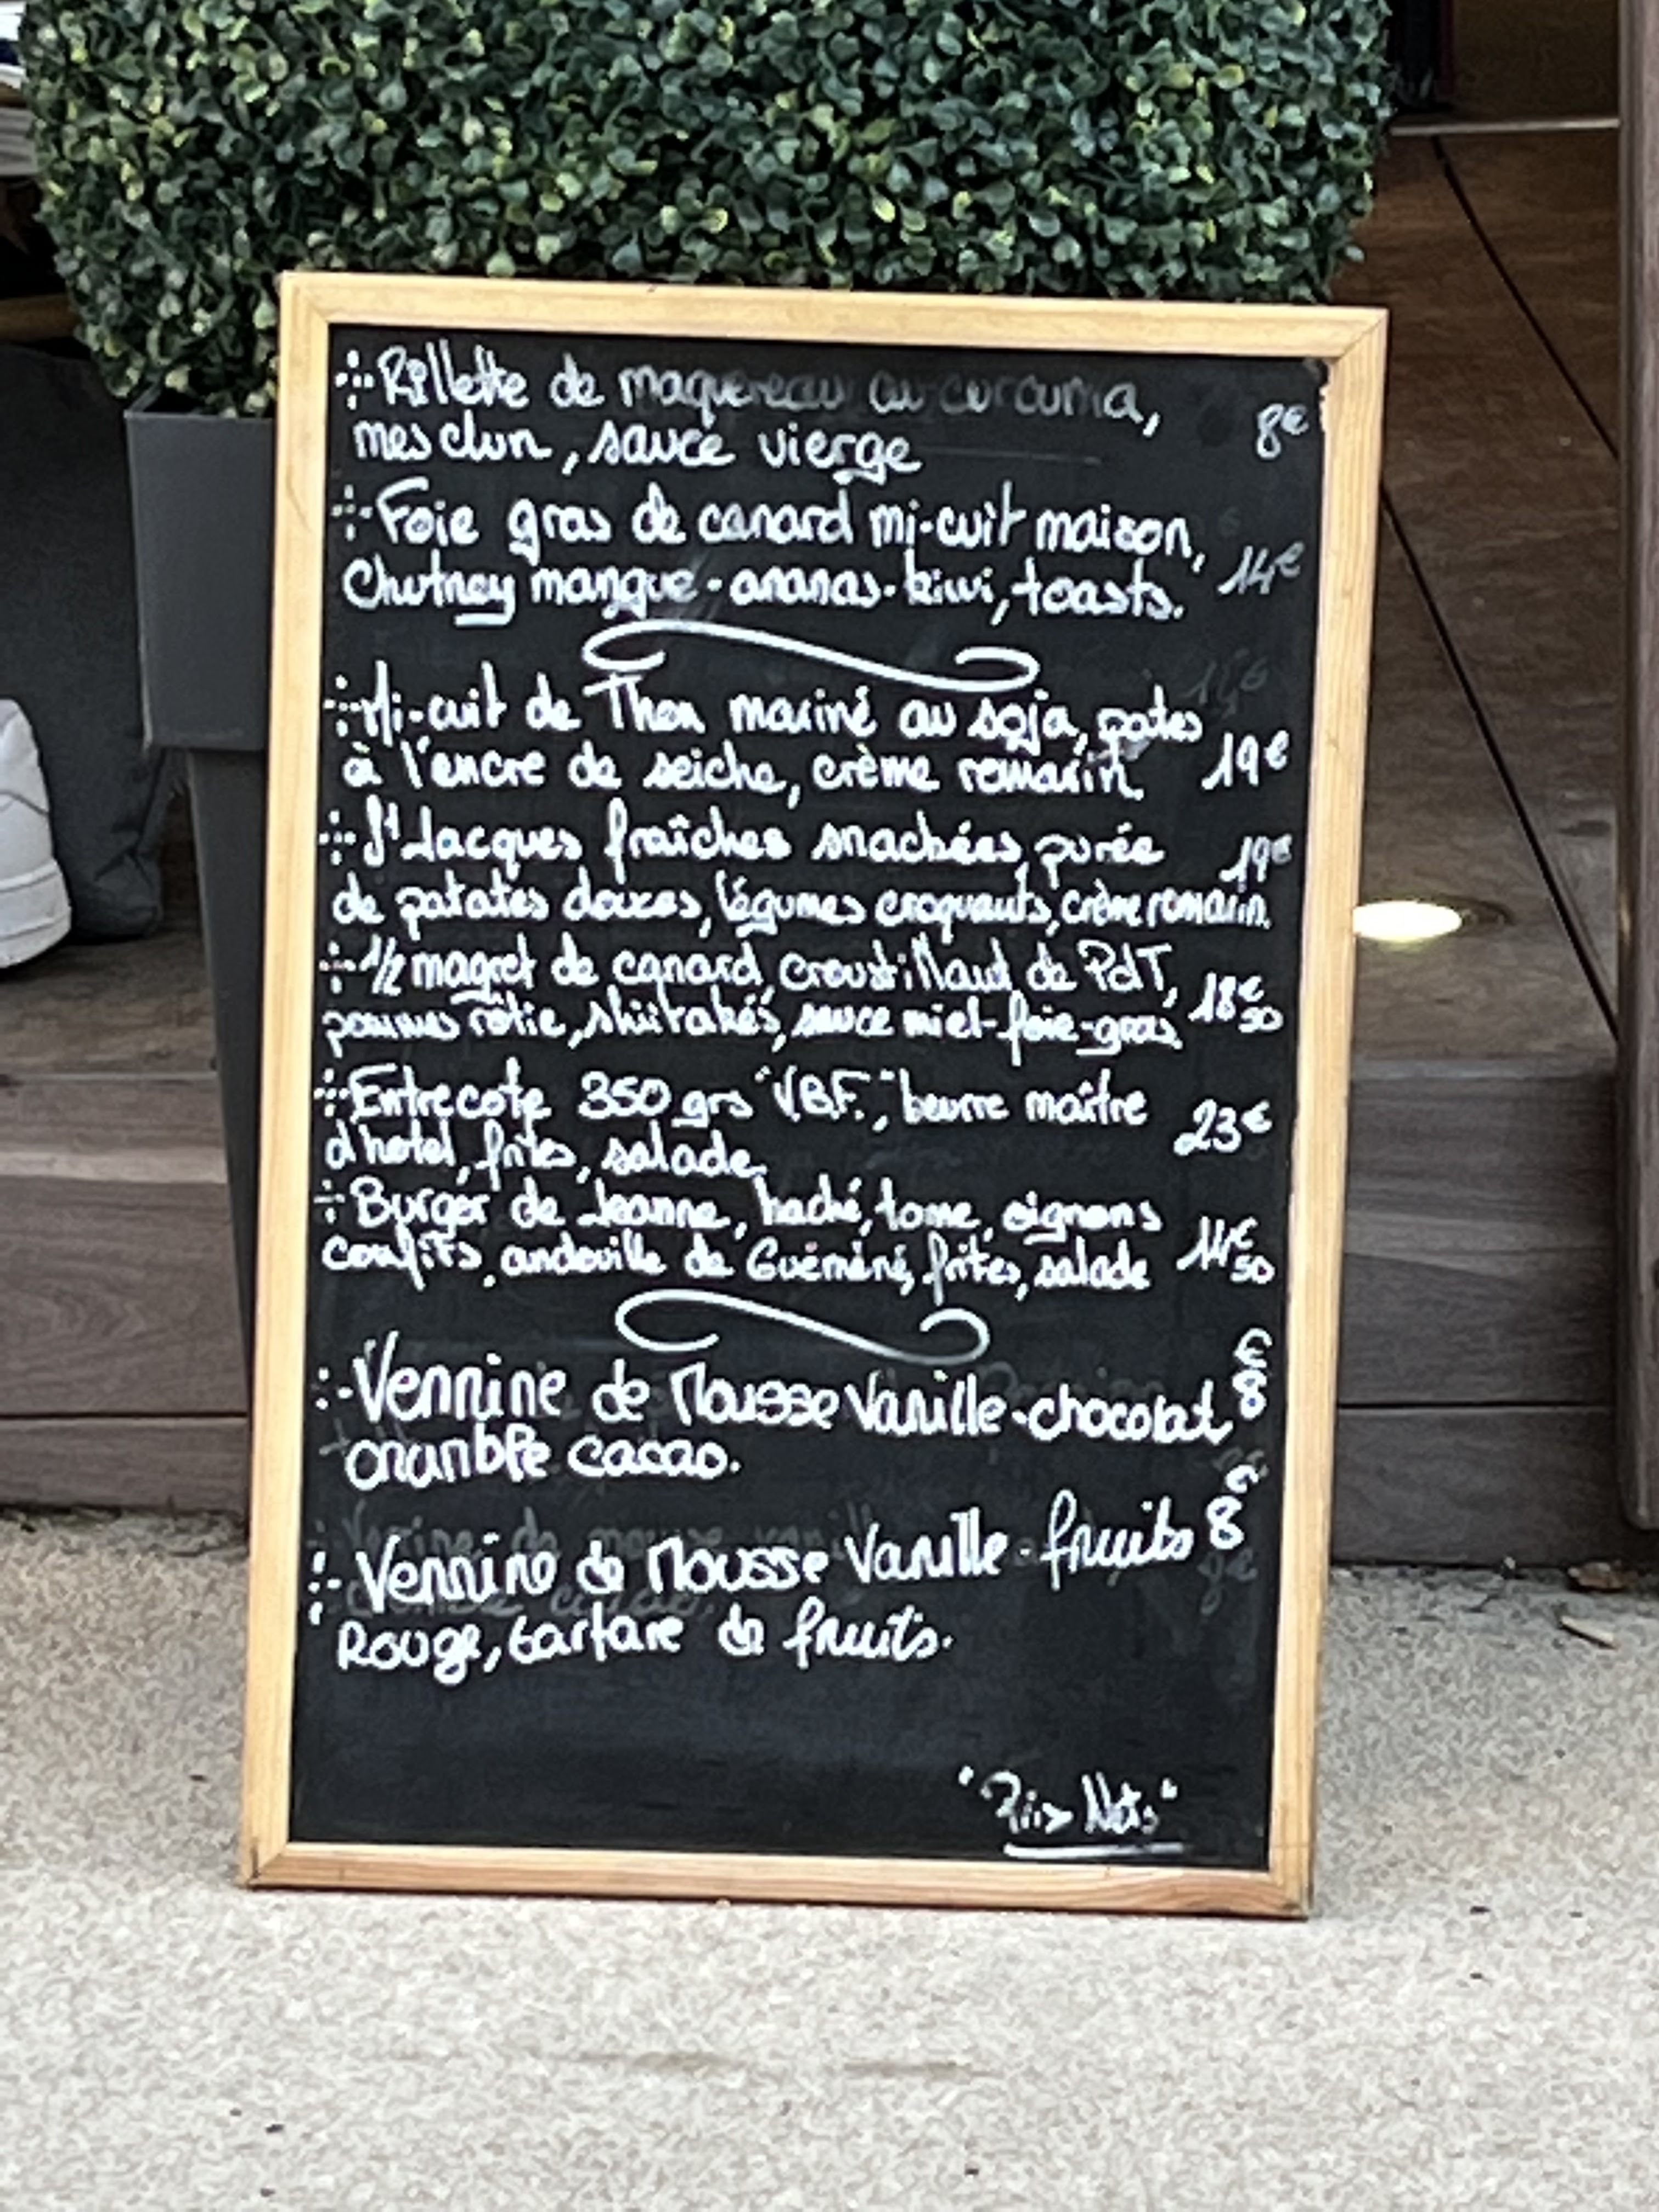 Rillette de maquereau au curcuma,
mesclun, sauce vierge 8€
Foie gras de canard mi-cuit maison,
Chutney mangue-ananas-kiwi, toasts. 14€
Mi-cuit de Thon mariné au soja, pates
à l'encre de seiche, crème romarin 19€
St Jacques fraîches snackées, purée 19€
de patates douces, légumes croquants, crème romarin.
1/2 magret de canard, croustillant de PdT,
pommes rôtie, shiitakés, sauce miel-foie-gras 18€50
Entrecote 350 grs "V.B.F.", beurre maître 23€
d'hotel, frites, salade
Burger de Jeanne, haché, tome, oignons
confits, andouille de Guéméné, frites, salade 14€50
Verrine de Mousse Vanille-chocolat 8€
crumble cacao.
Verrine de Mousse Vanille-fruits 8€
Rouge, tartare de fruits.
"Prix Nets"